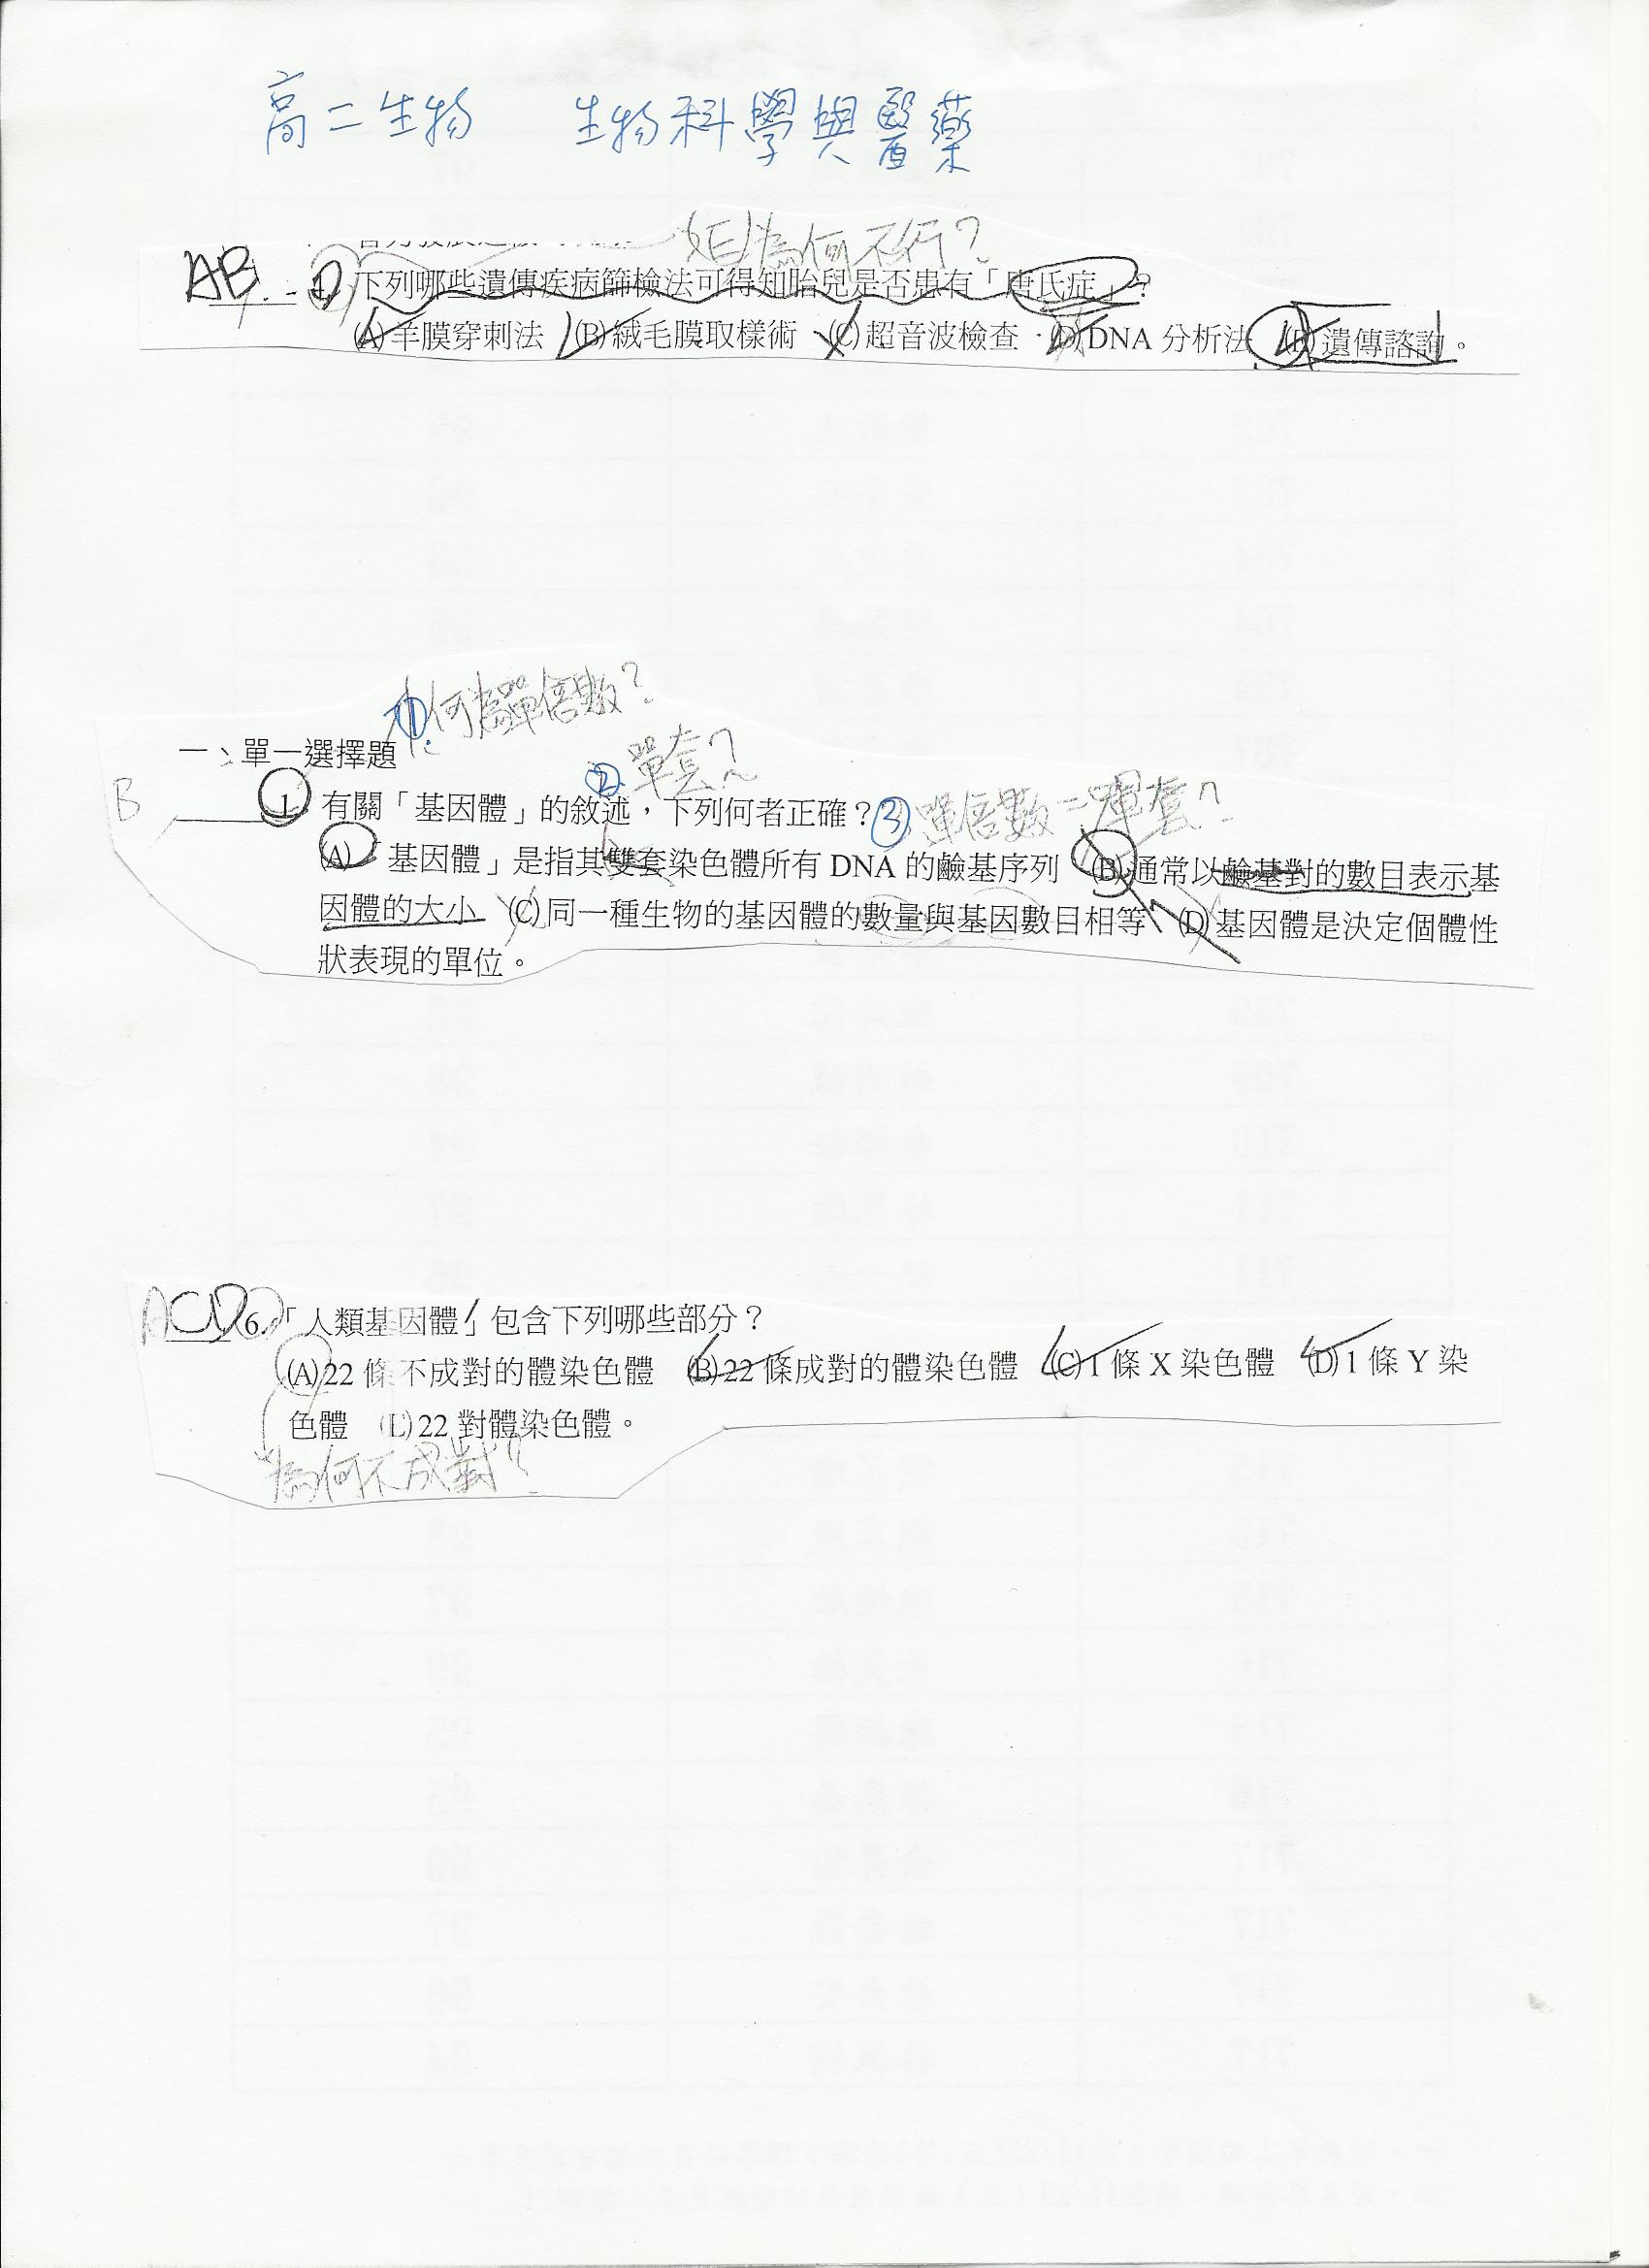 高二生物 生物科學與醫藥
(E)為何不行？
ABD 1. 下列哪些遺傳疾病篩檢法可得知胎兒是否患有「唐氏症」？
(A)羊膜穿刺法 (B)絨毛膜取樣術 (C)超音波檢查 (D)DNA 分析法 (E)遺傳諮詢。
①何為單倍數？
一、單一選擇題
②單套？
B 1. 有關「基因體」的敘述，下列何者正確？
③單倍數=單套？
(A)「基因體」是指其雙套染色體所有 DNA 的鹼基序列 (B)通常以鹼基對的數目表示基
因體的大小 (C)同一種生物的基因體的數量與基因數目相等 (D)基因體是決定個體性
狀表現的單位。
ACD 6.「人類基因體」包含下列哪些部分？
(A)22 條不成對的體染色體 (B)22 條成對的體染色體 (C)1 條 X 染色體 (D)1 條 Y 染
色體 (E)22 對體染色體。
為何不成對？